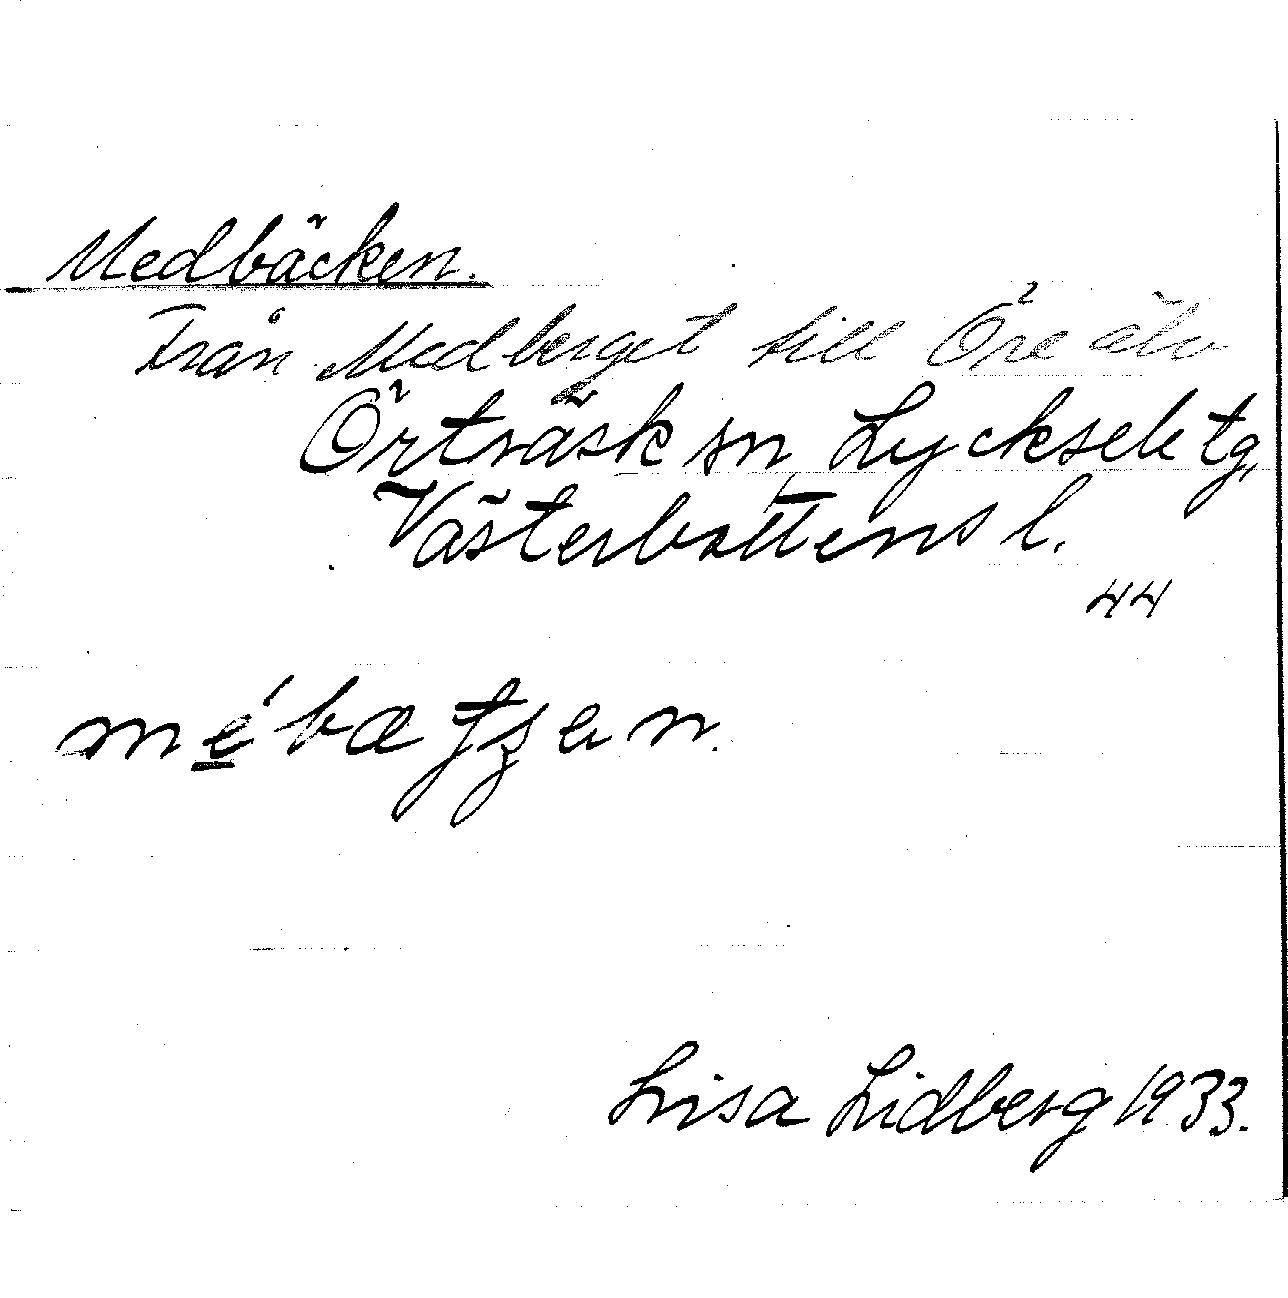 Medbäcken.
Från Medberget till Öre älv
Örträsk sn, Lycksele tg,
Västerbottens l.
44
mé̲bætʂen.
Lisa Lidberg 1933.